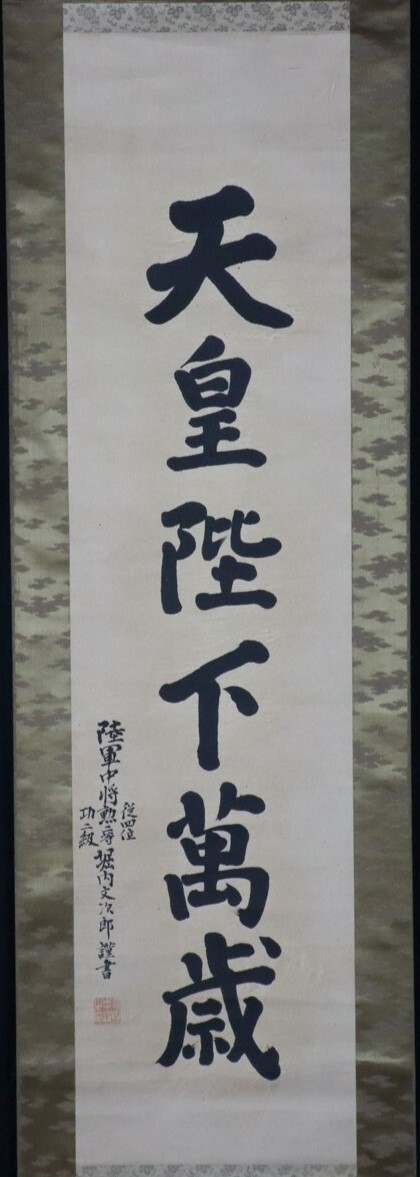 天皇陛下萬歳
陸軍中将勲二等從四位功二級堀内文次郎謹書